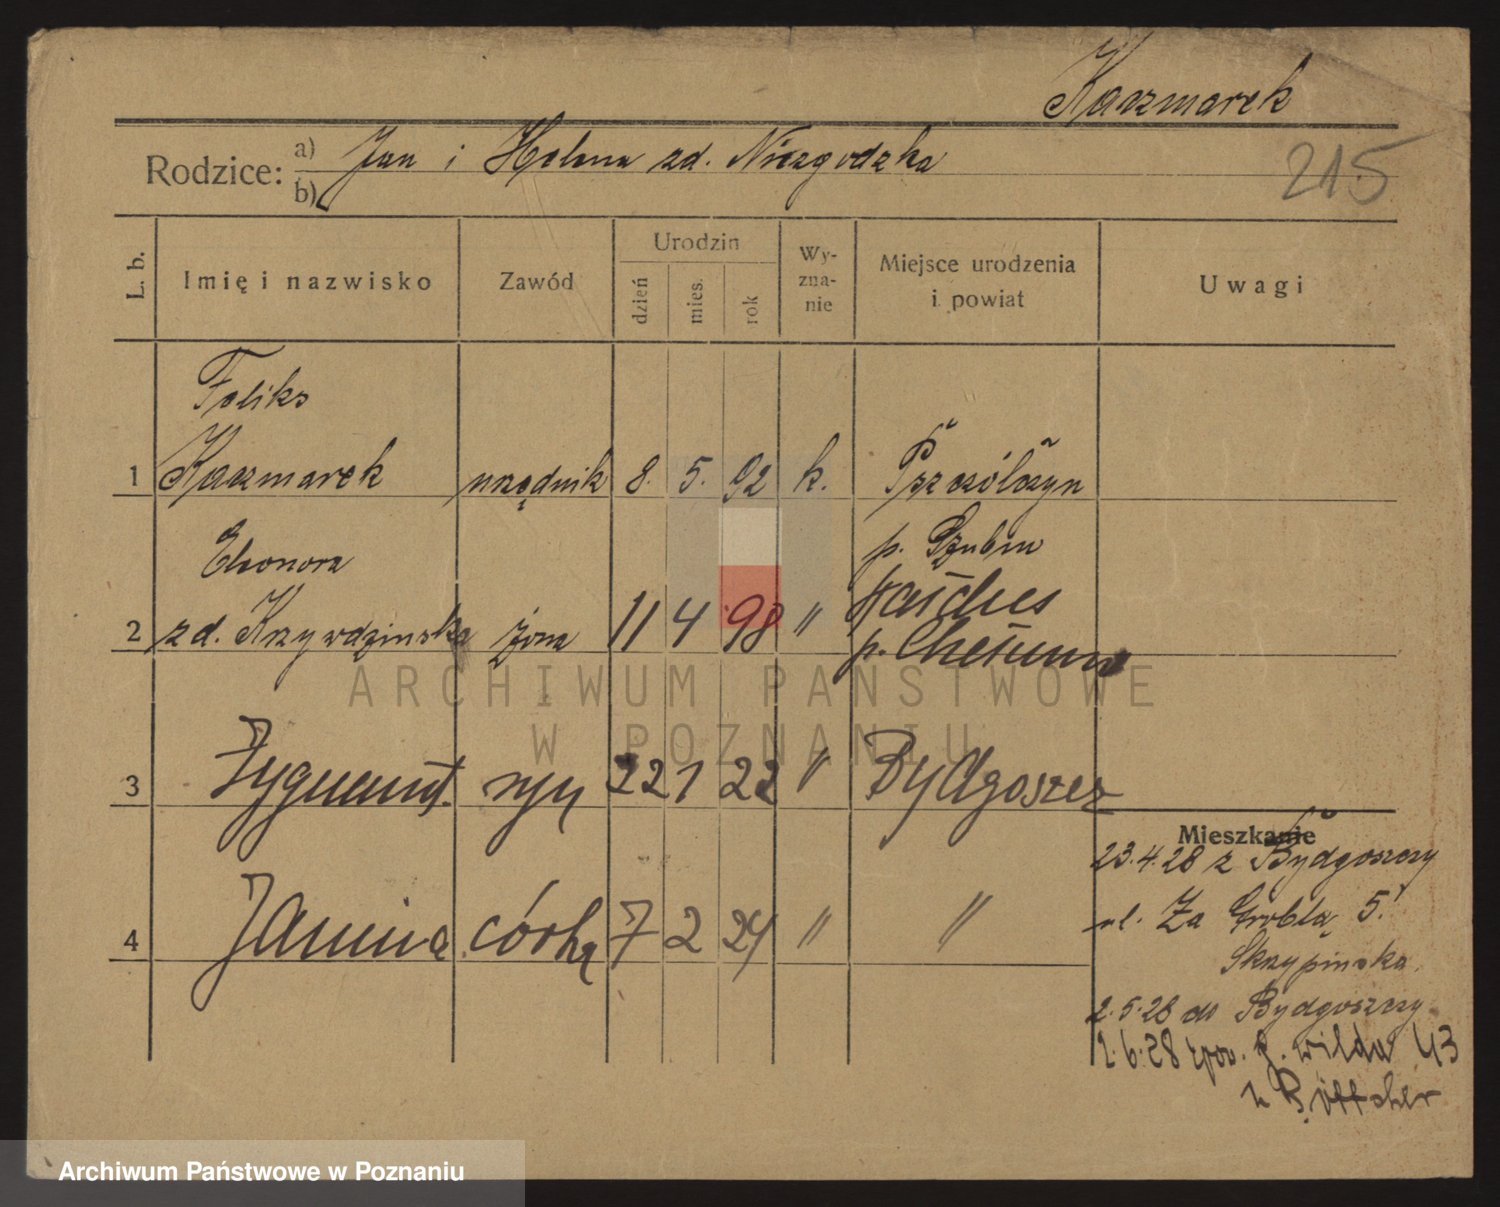 Kaczmarek
215
Rodzice: a) Jan i Helena zd. Niezgodzka
b)
L. b.
Imię i nazwisko
Zawód
Urodzin
dzień
mies.
rok
Wy-
zna-
nie
Miejsce urodzenia
i powiat
Uwagi
Feliks
1 Kaczmarek urzędnik 8. 5. 92 k. Pszczółczyn
p. Szubin
Eleonora
2 zd. Krzywdzińska żona 11 4 98 "
p. Chełmno
3 Zygmunt syn 22 1 22 " Bydgoszcz
4 Janina córka 7 2 24 " "
Mieszkanie
23.4.28 z Bydgoszczy
ul. Za Groblą 5.
Skrzypińska
2.5.28 do Bydgoszczy
1.6.28 spow. g. wilda 43
u Böttcher
ARCHIWUM PAŃSTWOWE
W POZNANIU
Archiwum Państwowe w Poznaniu